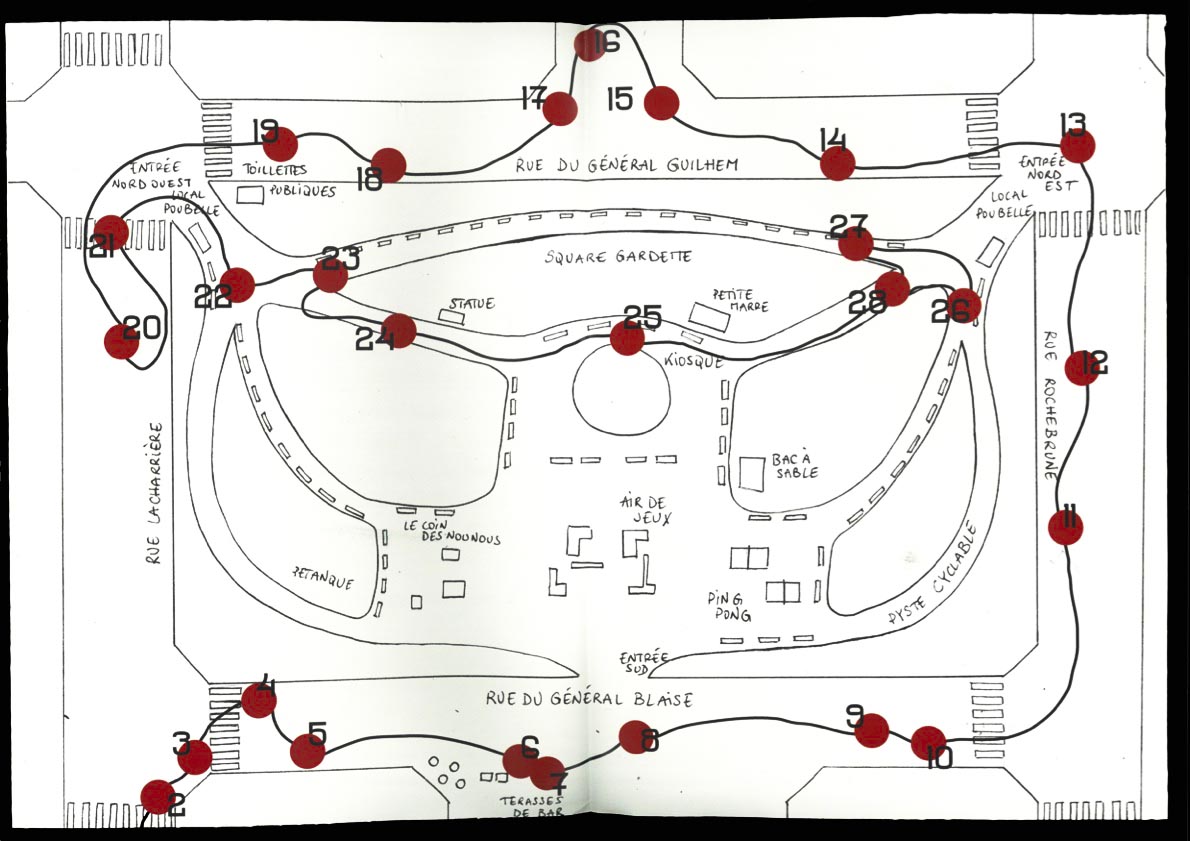 16
17
15
13
19
14
ENTRÉE
NORD OUEST
TOILLETTES
PUBLIQUES
18
RUE DU GÉNÉRAL GUILHEM
ENTRÉE
NORD
EST
LOCAL
POUBELLE
LOCAL
POUBELLE
21
27
23
SQUARE GARDETTE
22
28
26
STATUE
PETITE
MARRE
25
20
24
KIOSQUE
12
RUE LACHARRIÈRE
RUE ROCHEBRUNE
BAC À
SABLE
AIR DE
JEUX
11
LE COIN
DES NOUNOUS
PETANQUE
PING
PONG
PYSTE CYCLABLE
ENTRÉE
SUD
4
RUE DU GÉNÉRAL BLAISE
3
5
6
8
9
10
7
2
TERASSES
DE BAR